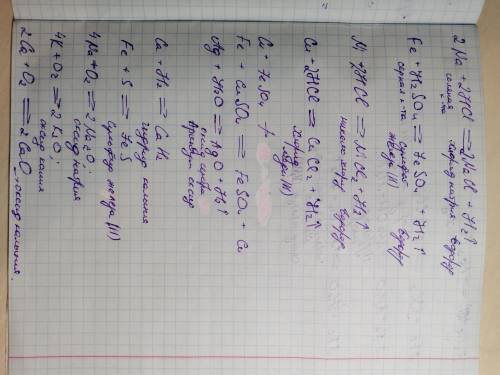 2 Na + 2HCl = 2NaCl + H2↑
соляная к-та хлорид натрия водород
Fe + H2SO4 = FeSO4 + H2↑
серная к-та сульфат железа (II) водород
Ni + 2HCl = NiCl2 + H2↑
водород
Cu + 2HCl = CuCl2 + H2↑
хлорид
Cu + FeSO4 ≠
Fe + CuSO4 = FeSO4 + Cu
Ag + H2O = AgO + H2↑
оксид
Ca + H2 = CaH2
гидрид кальция
Fe + S = FeS
сульфид железа (II)
4Na + O2 = 2Na2O;
оксид натрия
4K + O2 = 2K2O;
оксид калия
2Ca + O2 = 2CaO - оксид кальция.